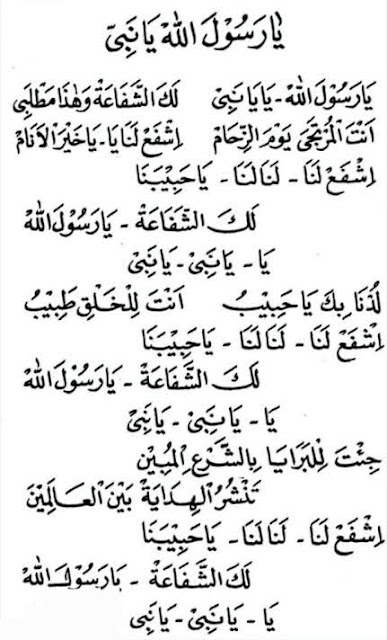 يٰارَسُوْلَ اللهْ يَا نَبِىّ
يَارَسُوْلَ اللهْ - يَايَانَبِىْ لَكَ الشَّفَاعَةْ وَهٰذَا مَطْلَبِى
اَنْتَ الْمُرْتَجَى يَوْمَ الزِّحَامْ اِشْفَعْ لَنَا يَا - يَاخَيْرَ الْاَنَامْ
اِشْفَعْ لَنَا - لَنَا لَنَا - يَاحَبِيْبَنَا
لَكَ الشَّفَاعَةْ - يَارَسُوْلَ اللهْ
يَا - يَانَبِىْ - يَانَبِىْ
لُذْنَا بِكَ يَاحَبِيْبُ اَنْتَ لِلْخَلْقِ طَبِيْبُ
اِشْفَعْ لَنَا - لَنَا لَنَا - يَاحَبِيْبَنَا
لَكَ الشَّفَاعَةْ - يَارَسُوْلَ اللهْ
يَا - يَانَبِىْ - يَانَبِىْ
جِئْتَ لِلْبَرَايَا بِالشَّرْعِ الْمُبِيْنْ
تَنْشُرُ الْهِدَايَةْ بَيْنَ الْعَالَمِيْنَ
اِشْفَعْ لَنَا - لَنَا لَنَا - يَاحَبِيْبَنَا
لَكَ الشَّفَاعَةْ - يَارَسُوْلَ اللهْ
يَا - يَانَبِىْ - يَانَبِىْ